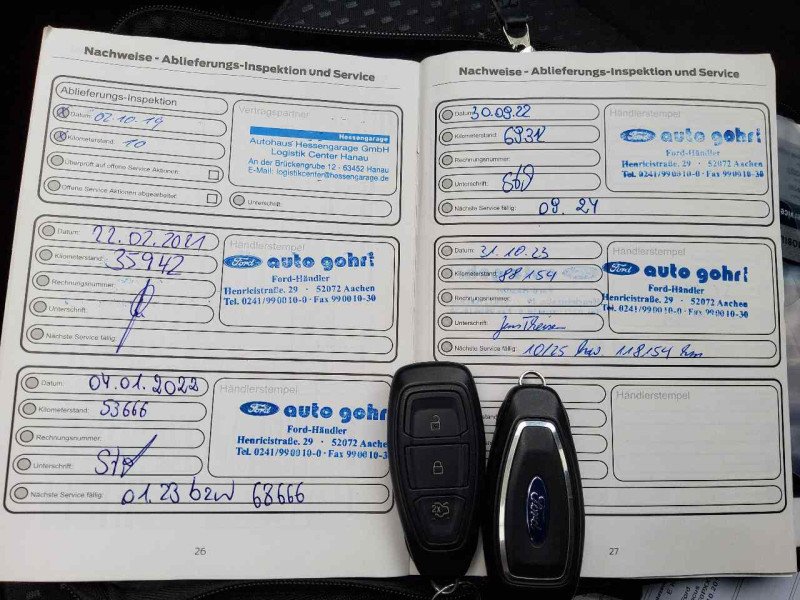 Nachweise - Ablieferungs-Inspektion und Service
Ablieferungs-Inspektion
Datum: 02.10.19
Kilometerstand: 10
Überprüft auf offene Service Aktionen:
Offene Service Aktionen abgearbeitet:
Vertragspartner
Hessengarage
Autohaus Hessengarage GmbH
Logistik Center Hanau
An der Brückengrube 12 - 63452 Hanau
E-Mail: logistikcenter@hessengarage.de
Unterschrift:
Datum: 22.02.2021
Kilometerstand: 35942
Rechnungsnummer:
Unterschrift:
Nächste Service fällig:
Händlerstempel
Ford auto gohr!
Ford-Händler
Henricistraße. 29 · 52072 Aachen
Tel. 0241/990010-0 · Fax 990010-30
Datum: 04.01.2022
Kilometerstand: 53666
Rechnungsnummer:
Unterschrift:
Nächste Service fällig: 01.23 bzw 68666
Händlerstempel
Ford auto gohr!
Ford-Händler
Henricistraße. 29 · 52072 Aachen
Tel. 0241/990010-0 · Fax 990010-30
26
Nachweise - Ablieferungs-Inspektion und Service
Datum: 30.09.22
Kilometerstand:
Rechnungsnummer:
Unterschrift:
Nächste Service fällig: 09.24
Händlerstempel
Ford auto gohr!
Ford-Händler
Henricistraße. 29 · 52072 Aachen
Tel. 0241/990010-0 · Fax 990010-30
Datum: 31.10.23
Kilometerstand: 88154
Rechnungsnummer:
Unterschrift:
Nächste Service fällig: 10/25 bzw 118154 km
Händlerstempel
Ford auto gohr!
Ford-Händler
Henricistraße. 29 · 52072 Aachen
Tel. 0241/990010-0 · Fax 990010-30
Händlerstempel
27
2x
Ford